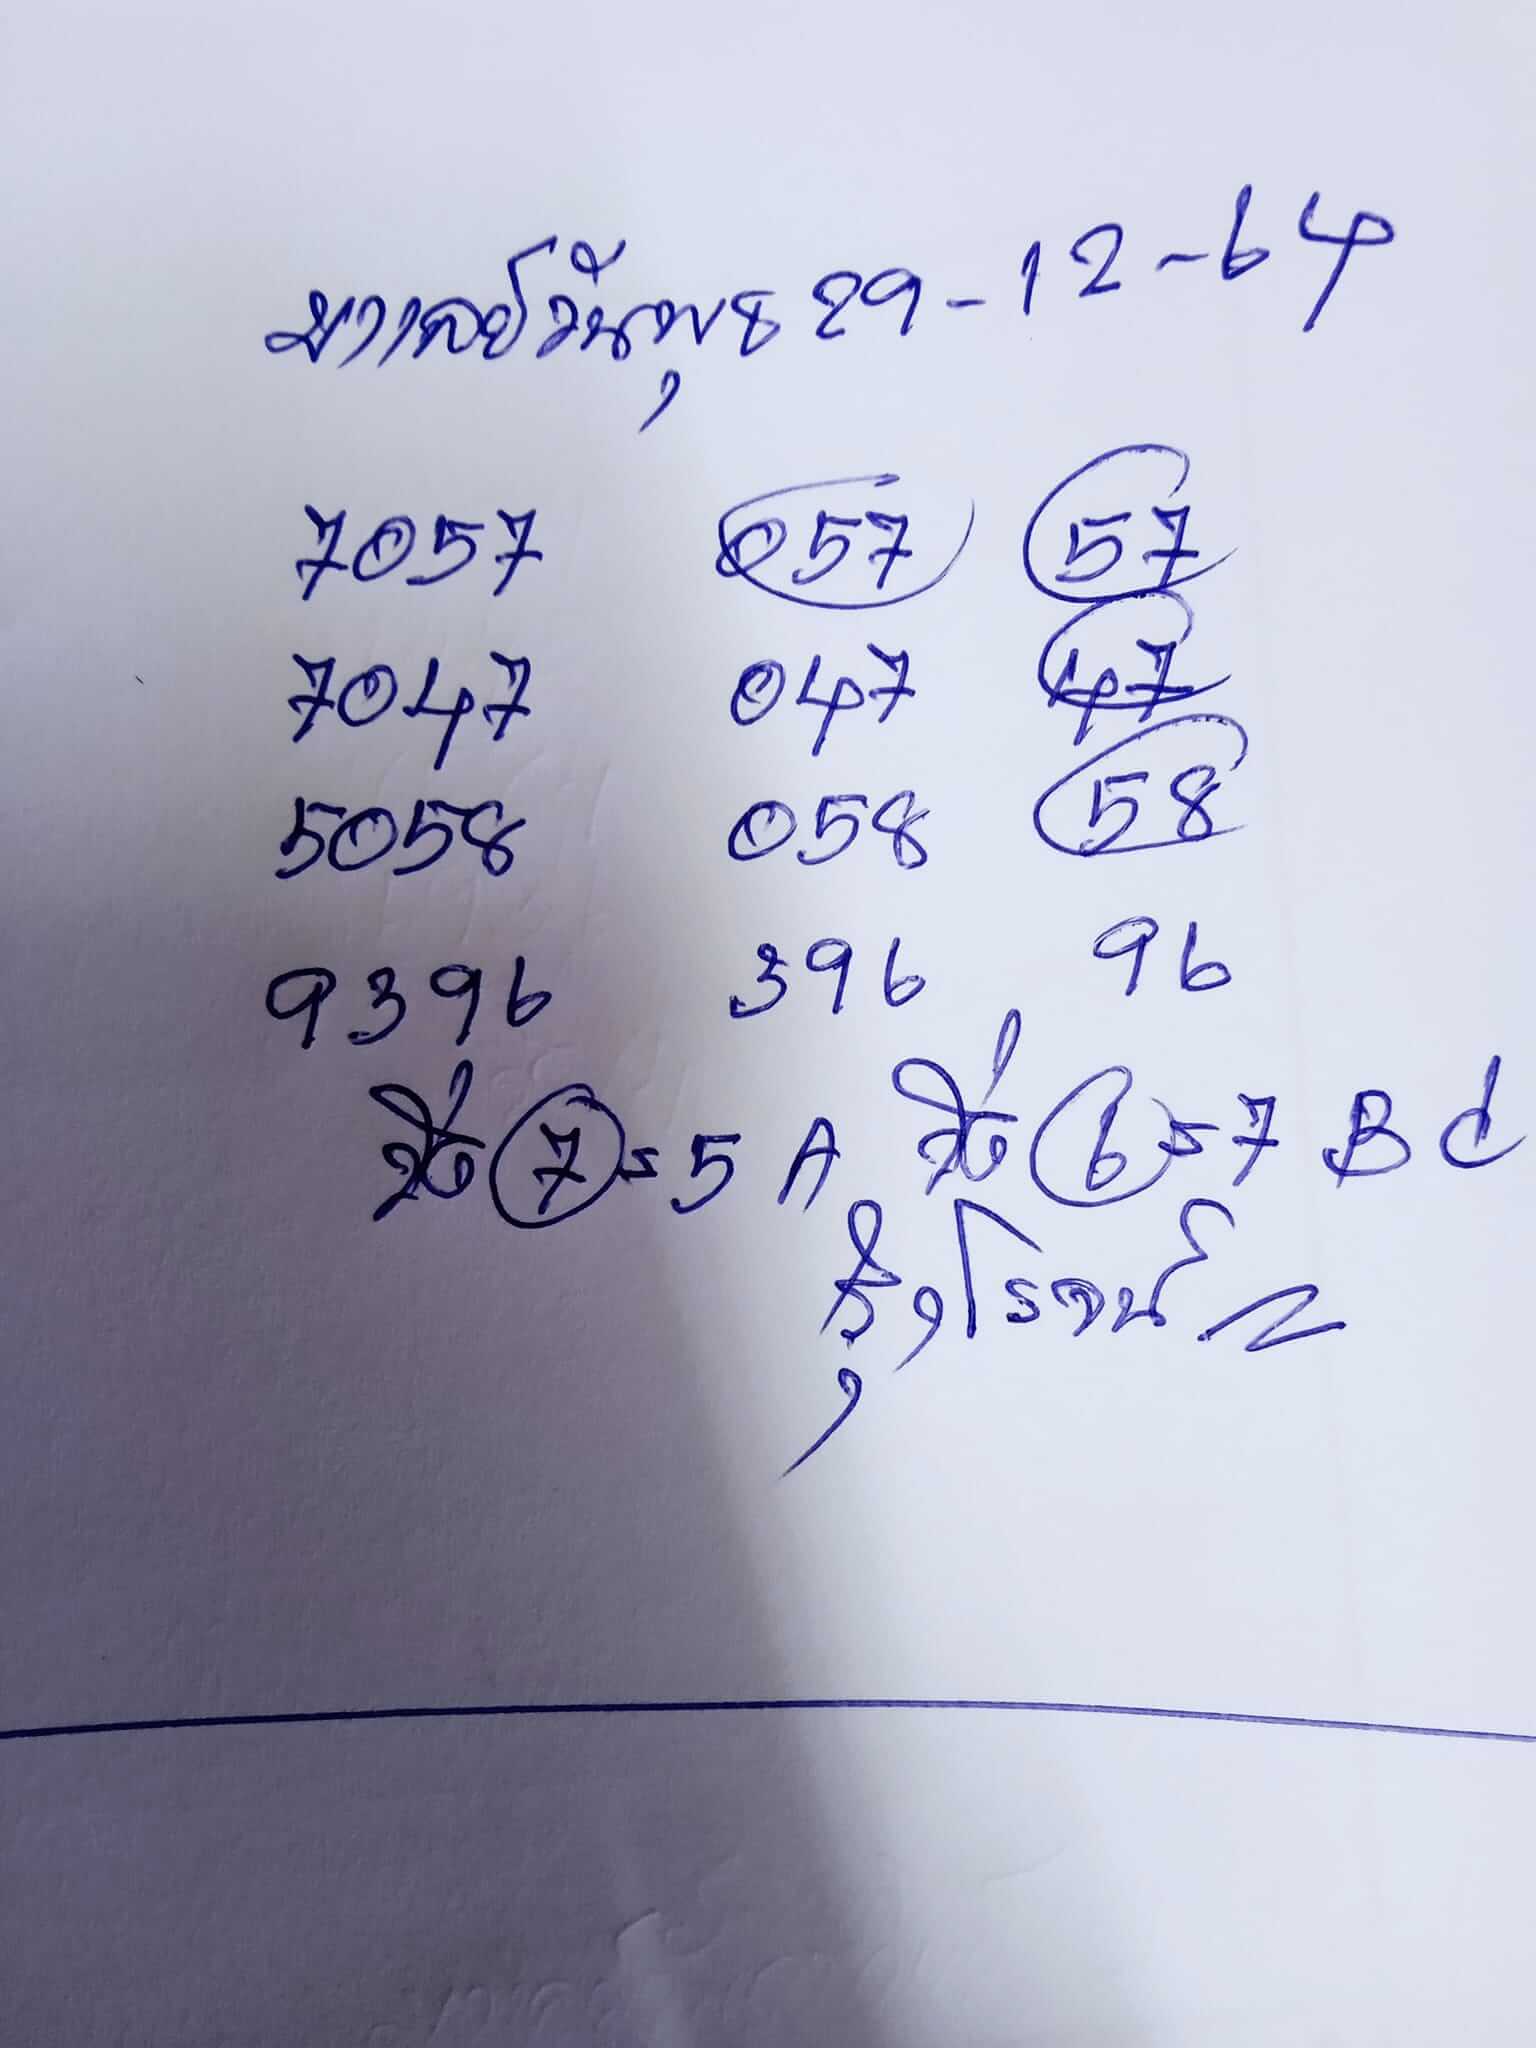 มาเลย์วันพุธ 29-12-64
7057 057 57
7047 047 47
5058 058 58
9396 396 96
สี่ 7=5 A สี่ 6=7 B d
โรจน์